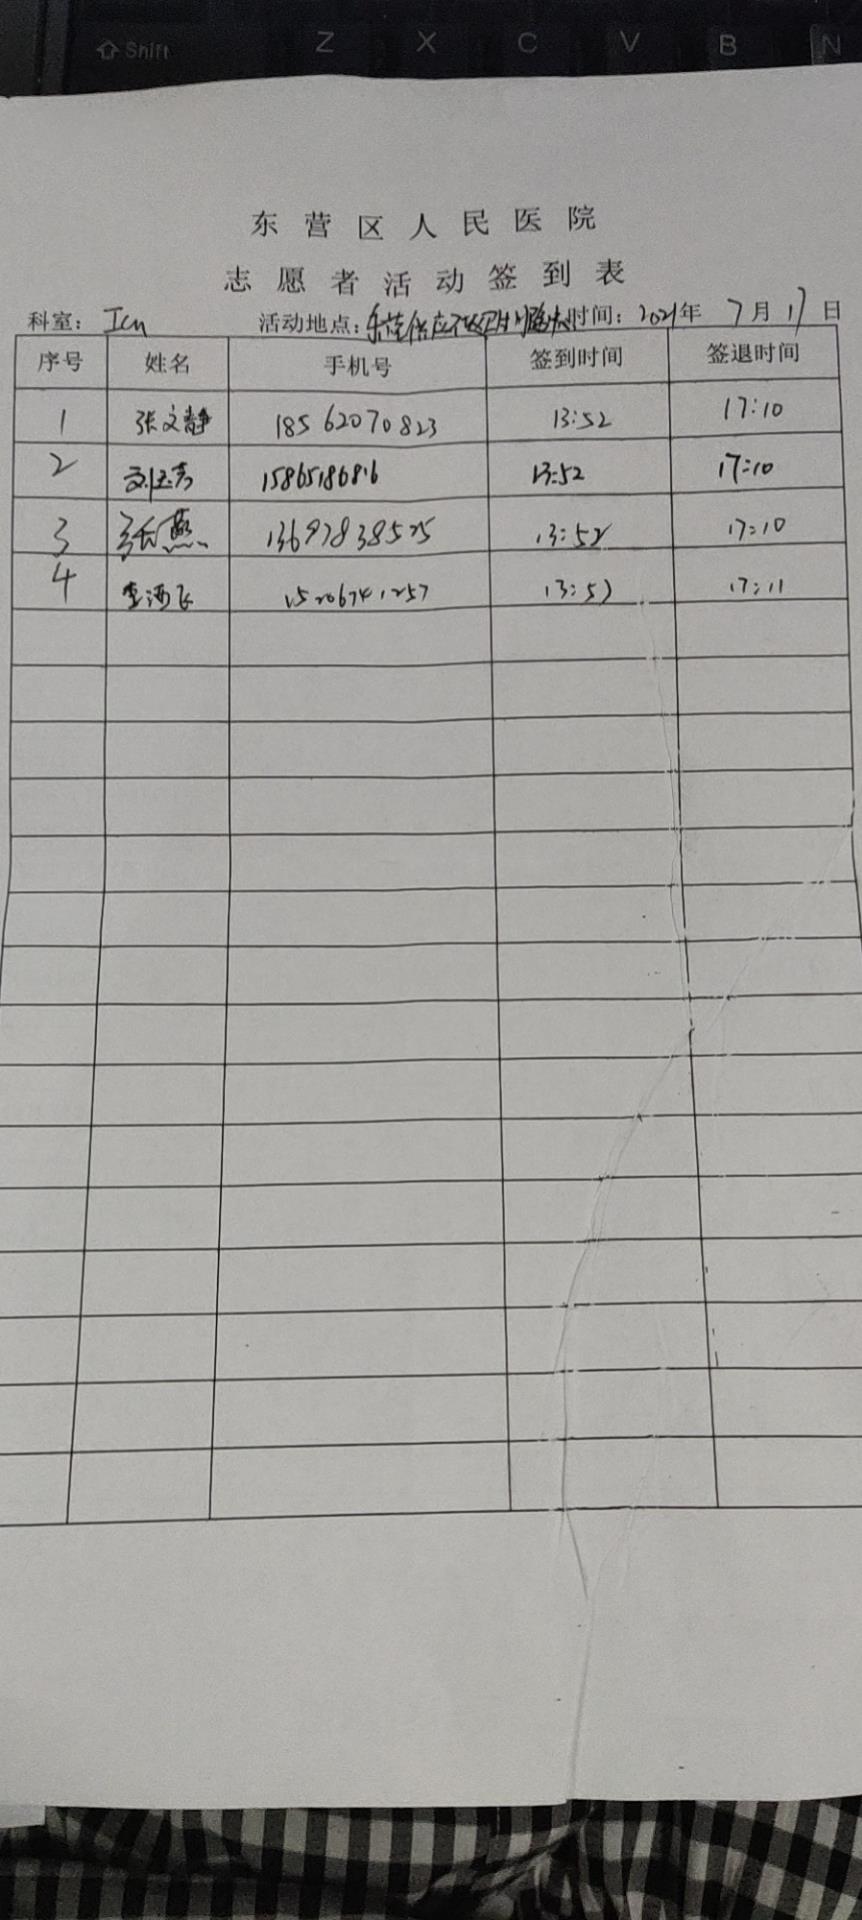 Shift Z X C V B N
东营区人民医院
志愿者活动签到表
科室：Icu 活动地点： 时间：2021年 7月17日
序号 姓名 手机号 签到时间 签退时间
1 张文静 18562070823 13:52 17:10
2 13:52 17:10
3 张燕 13697838525 13:52 17:10
4 15206741257 13:52 17:11